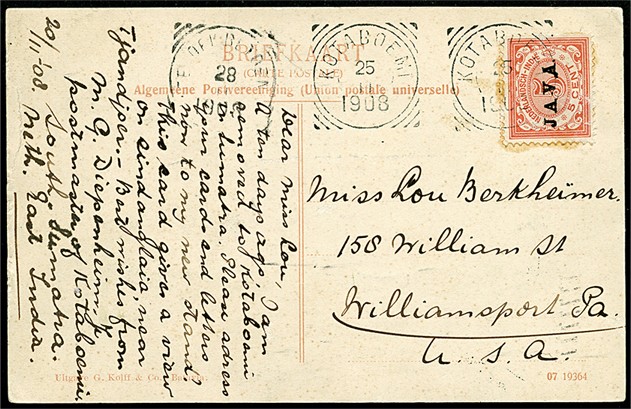 BRIEFKAART
(CARTE POSTALE)
Algemeene Postvereeniging (Union postale universelle)
28
KOTABOEMI
25
1908
KOTABOEMI
25
NEDERLANDSCH-INDIË
5 CENT
JAVA
Dear Miss Lou,
A ten days ago, I am
removed to Kotaboemi
on Sumatra. Please adress
your cards and letters
now to my new stand
This card gives a view
on Sindanglaia, near
Tjandjoer. - Best wishes from
M. G. Diepenheim Jr
postmaster of Kotaboemi.
South Sumatra.
20/11-'08 Neth. East India.
Miss Lou Berkheimer.
158 William St
Williamsport Pa.
U. S. A.
Uitgave G. Kolff & Co.
07 19364